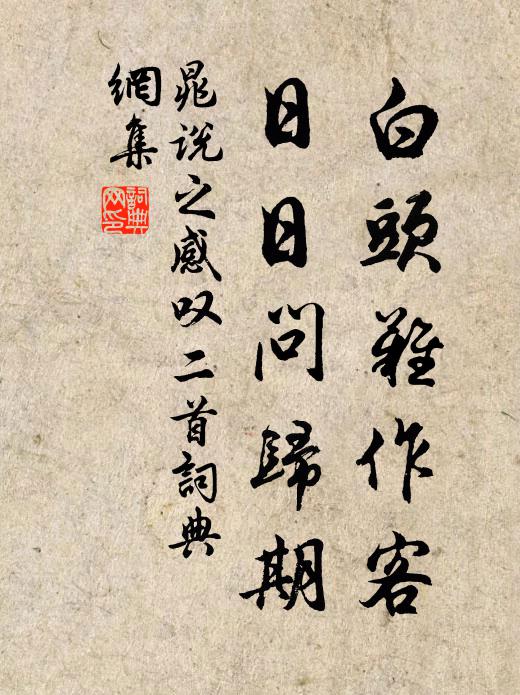 白頭難作客
日日問歸期
晁說之感叹二首詞典
網集
詞典網印